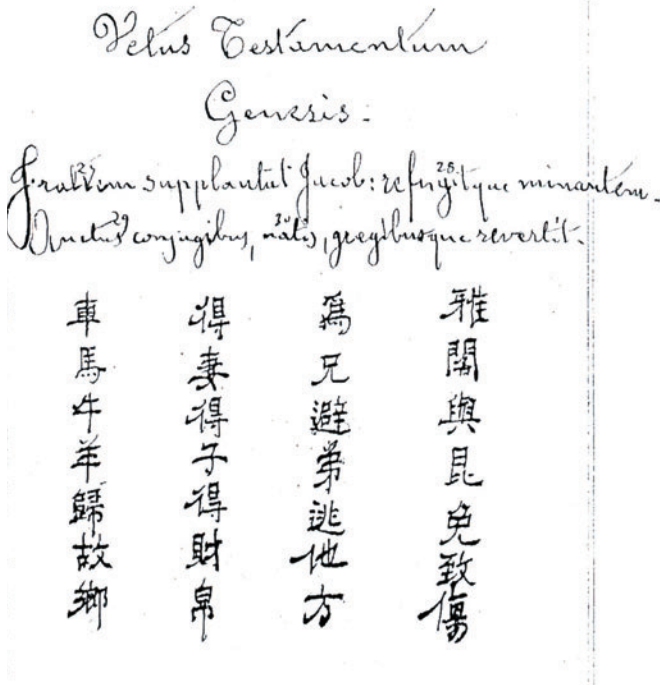 Vetus Testamentum
Genesis.
Fratrem 27 supplantat Jacob: refugitque 28 minantem.
Auctus 29 conjugibus, natis 30, gregibusque revertit.
雅閣與昆免致傷
為兄避弟逃他方
得妻得子得財帛
車馬牛羊歸故鄉